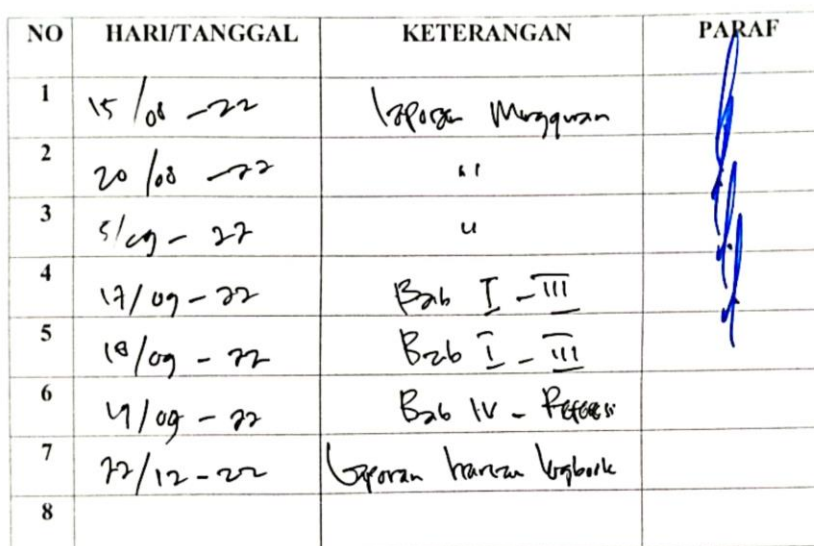 NO HARI/TANGGAL KETERANGAN PARAF
1 15/08-22 Laporan Mingguan
2 20/08-22 "
3 5/09-22 "
4 17/09-22 Bab I-III
5 18/09-22 Bab I-III
6 /09-22 Bab IV-
7 22/12-22 Laporan harian logbook
8